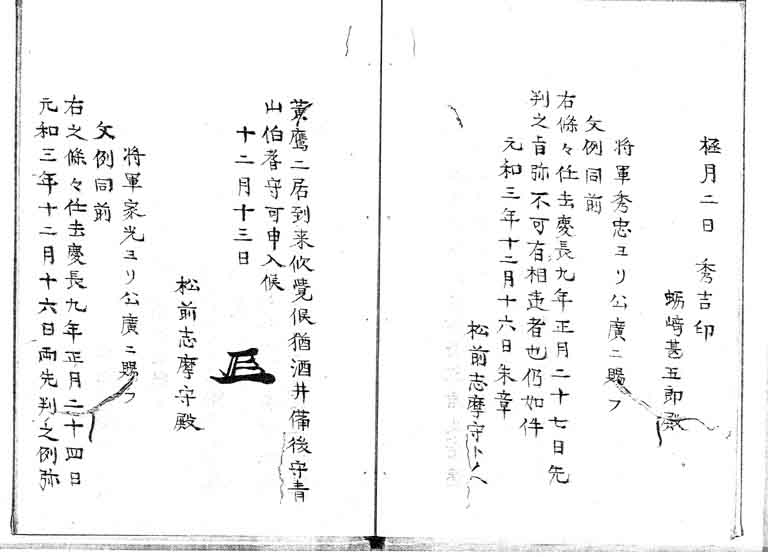 極月二日 秀吉印
蛎崎甚五郎殿
将軍秀忠ヨリ公廣ニ賜フ
文例同前
右條々任去慶長九年正月二十七日先
判之旨弥不可有相違者也仍如件
元和三年十二月十六日朱章
松前志摩守トノヘ
黄鷹二居到来欣覺候猶酒井備後守青
山伯耆守可申入候
十二月十三日
松前志摩守殿
将軍家光ヨリ公廣ニ賜フ
文例同前
右之條々任去慶長九年正月二十四日
元和三年十二月十六日両先判之例弥